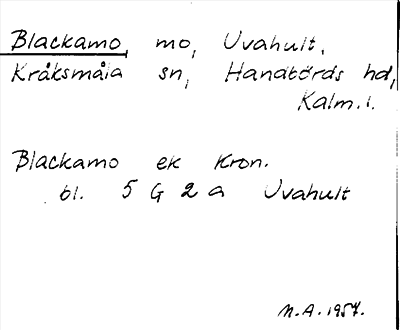 Blackamo, mo, Uvahult,
Kråksmåla sn, Handbörds hd,
Kalm.l.
Blackamo ek Kron.
bl. 5 G 2 a Uvahult
M.A. 1954.